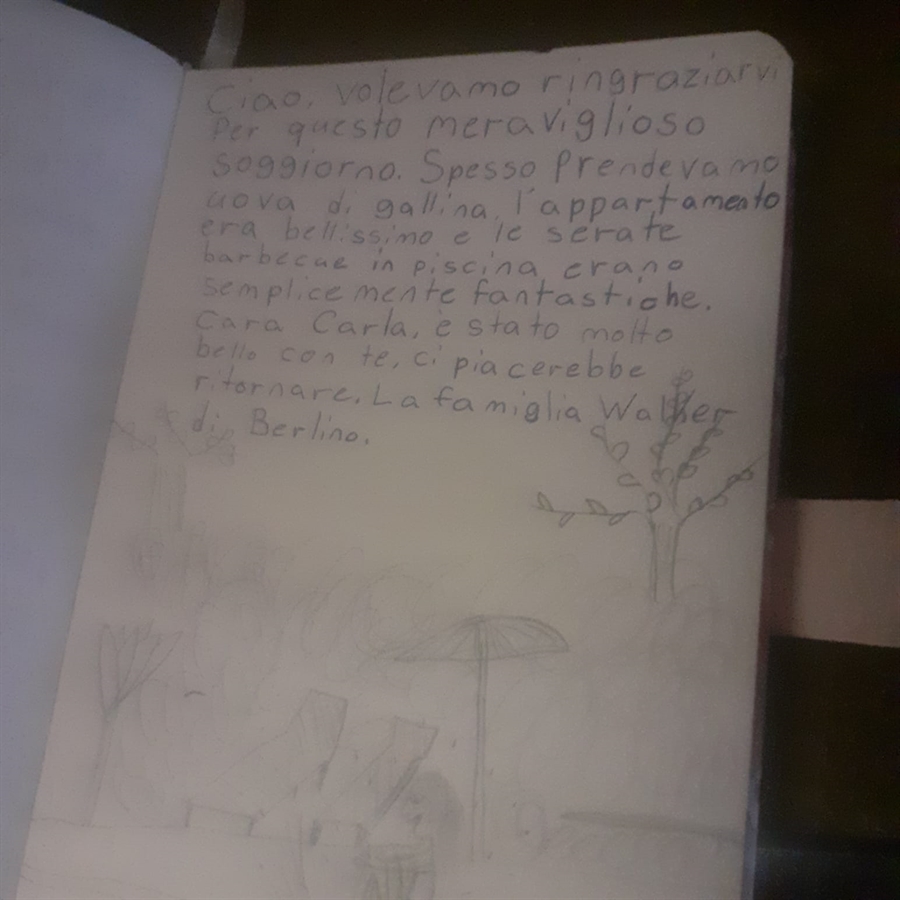 Ciao, volevamo ringraziarvi
per questo meraviglioso
soggiorno. Spesso Prendevamo
uova di gallina, l'appartamento
era bellissimo e le serate
barbecue in piscina erano
semplicemente fantastiche.
Cara Carla, è stato molto
bello con te, ci piacerebbe
ritornare. La famiglia Walther
di Berlino.